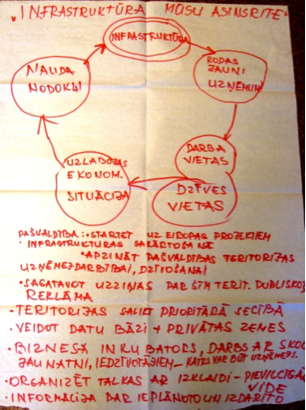 "INFRASTRUKTŪRA MŪSU ASINSRITE"
INFRASTRUKTŪRA
RODAS
JAUNI
UZŅĒMUMI
DARBA
VIETAS
DZĪVES
VIETAS
UZLABOJAS
EKONOM.
SITUĀCIJA
NAUDA
NODOKĻI
PAŠVALDĪBA: • STARTĒT UZ EIROPAS PROJEKTIEM
• INFRASTRUKTŪRAS SAKĀRTOŠANA
• APZINĀT PAŠVALDĪBAS TERITORIJAS
UZŅĒMĒJDARBĪBAI, DZĪVOŠANAI
• SAGATAVOT UZZIŅAS PAR ŠĪM TERIT. PUBLISKOT
REKLĀMA
• TERITORIJAS SALIKT PRIORITĀRĀ SECĪBĀ
• VEIDOT DATU BĀZI + PRIVĀTĀS ZEMES
• BIZNESA INKUBATORS, DARBS AR SKOL
JAUNATNI, IEDZĪVOTĀJIEM – KATRS VAR BŪT UZŅĒMĒJS.
• ORGANIZĒT TALKAS AR IZKLAIDI – PIEVILCĪGA
VIDE
• INFORMĀCIJA PAR IEPLĀNOTO UN IZDARĪTO